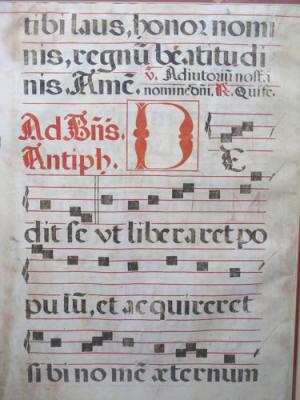 tibi laus, honor nomi
nis, regnũ beatitudi
nis. Amẽ. ℣. Adiutoriũ nost. i
nomine dñi. ℟. Qui fe.
Ad Bñs.
Antiph.
D E
dit se vt liberaret po
pulũ, et acquireret
sibi nomẽ æternum